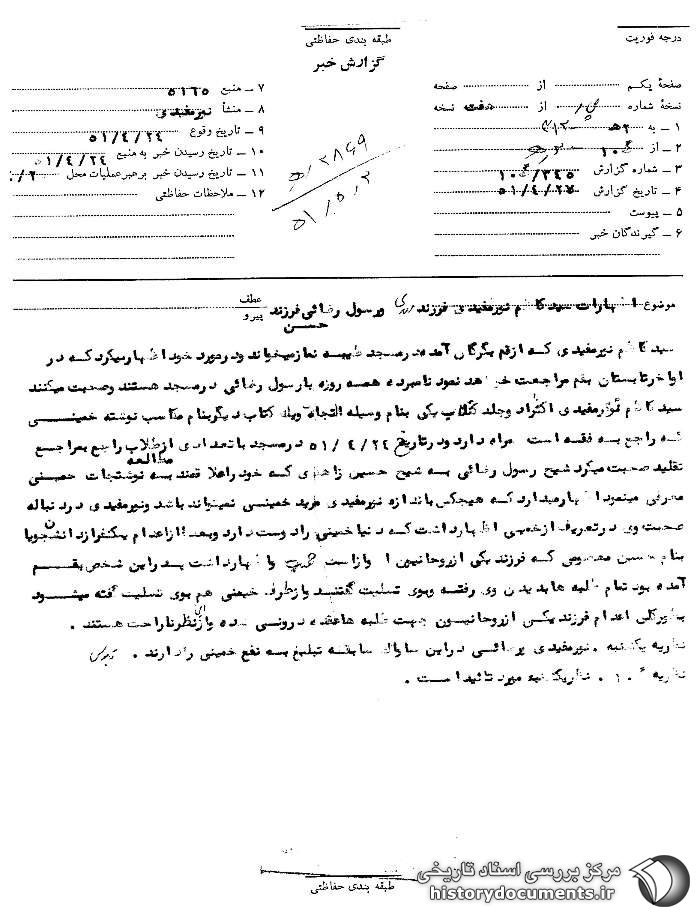 درجه فوریت
طبقه بندی حفاظتی
گزارش خبر
صفحهٔ یکم از صفحه
نسخهٔ شماره از هفت نسخه
۱ ـ به ۳۱۲
۲ ـ از
۳ ـ شماره گزارش ۳۴۵/ ۱۰
۴ ـ تاریخ گزارش ۵۱/۴/۲۷
۵ ـ پیوست
۶ ـ گیرندگان خبر
۷ ـ منبع ۵۱۶۵
۸ ـ منشأ نورمفیدی
۹ ـ تاریخ وقوع ۵۱/۴/۲۴
۱۰ ـ تاریخ رسیدن خبر به منبع ۵۱/۴/۲۴
۱۱ ـ تاریخ رسیدن خبر برهبر عملیات محل
۱۲ ـ ملاحظات حفاظتی
۲۸۶۹
۵۱/۵/۲
موضوع اظهارات سید کاظم نورمفیدی فرزند مهدی و رسول رضائی فرزند حسن
عطف
پیرو
سید کاظم نورمفیدی که از قم بگرگان آمده در مسجد طیبه نماز میخواند و در مورد خود اظهار میکرد که در
اواخر تابستان بقم مراجعت خواهد نمود نامبرده همه روزه با رسول رضائی در مسجد هستند و صحبت میکنند
سید کاظم نورمفیدی اکثراً دو جلد کتاب یکی بنام وسیله النجاه و یک کتاب دیگر بنام مکاسب نوشته خمینی
که راجع به فقه است همراه دارد و در تاریخ ۵۱/۴/۲۴ در مسجد با تعدادی از طلاب راجع بمراجع
تقلید صحبت میکرد شیخ رسول رضائی به شیخ حسین زاهدی که خود را علاقمند به مطالعه نوشتجات خمینی
معرفی مینمود اظهار میدارد که هیچکس باندازه نورمفیدی مرید خمینی نمیتواند باشد و نورمفیدی در دنباله
صحبت وی در تعریف از خمینی اظهار داشت که دنیا خمینی را دوست دارد و بعد از اعدام یکنفر از دانشجویان
بنام حسین معصومی که فرزند یکی از روحانیون است و اظهار داشت پدر این شخص بقم
آمده بود تمام طلبه ها بدیدن وی رفته و بوی تسلیت گفتند و از طرف خمینی هم بوی تسلیت گفته میشود
بطور کلی اعدام فرزند یکی از روحانیون جهت طلبه ها عقده درونی شده و از این نظر ناراحت هستند .
نظریه یکشنبه . نورمفیدی و رضائی در این سابقه تبلیغ به نفع خمینی را دارند .
نظریه ۱۰ . نظر یکشنبه مورد تائید است .
طبقه بندی حفاظتی
مرکز بررسی اسناد تاریخی
historydocuments.ir